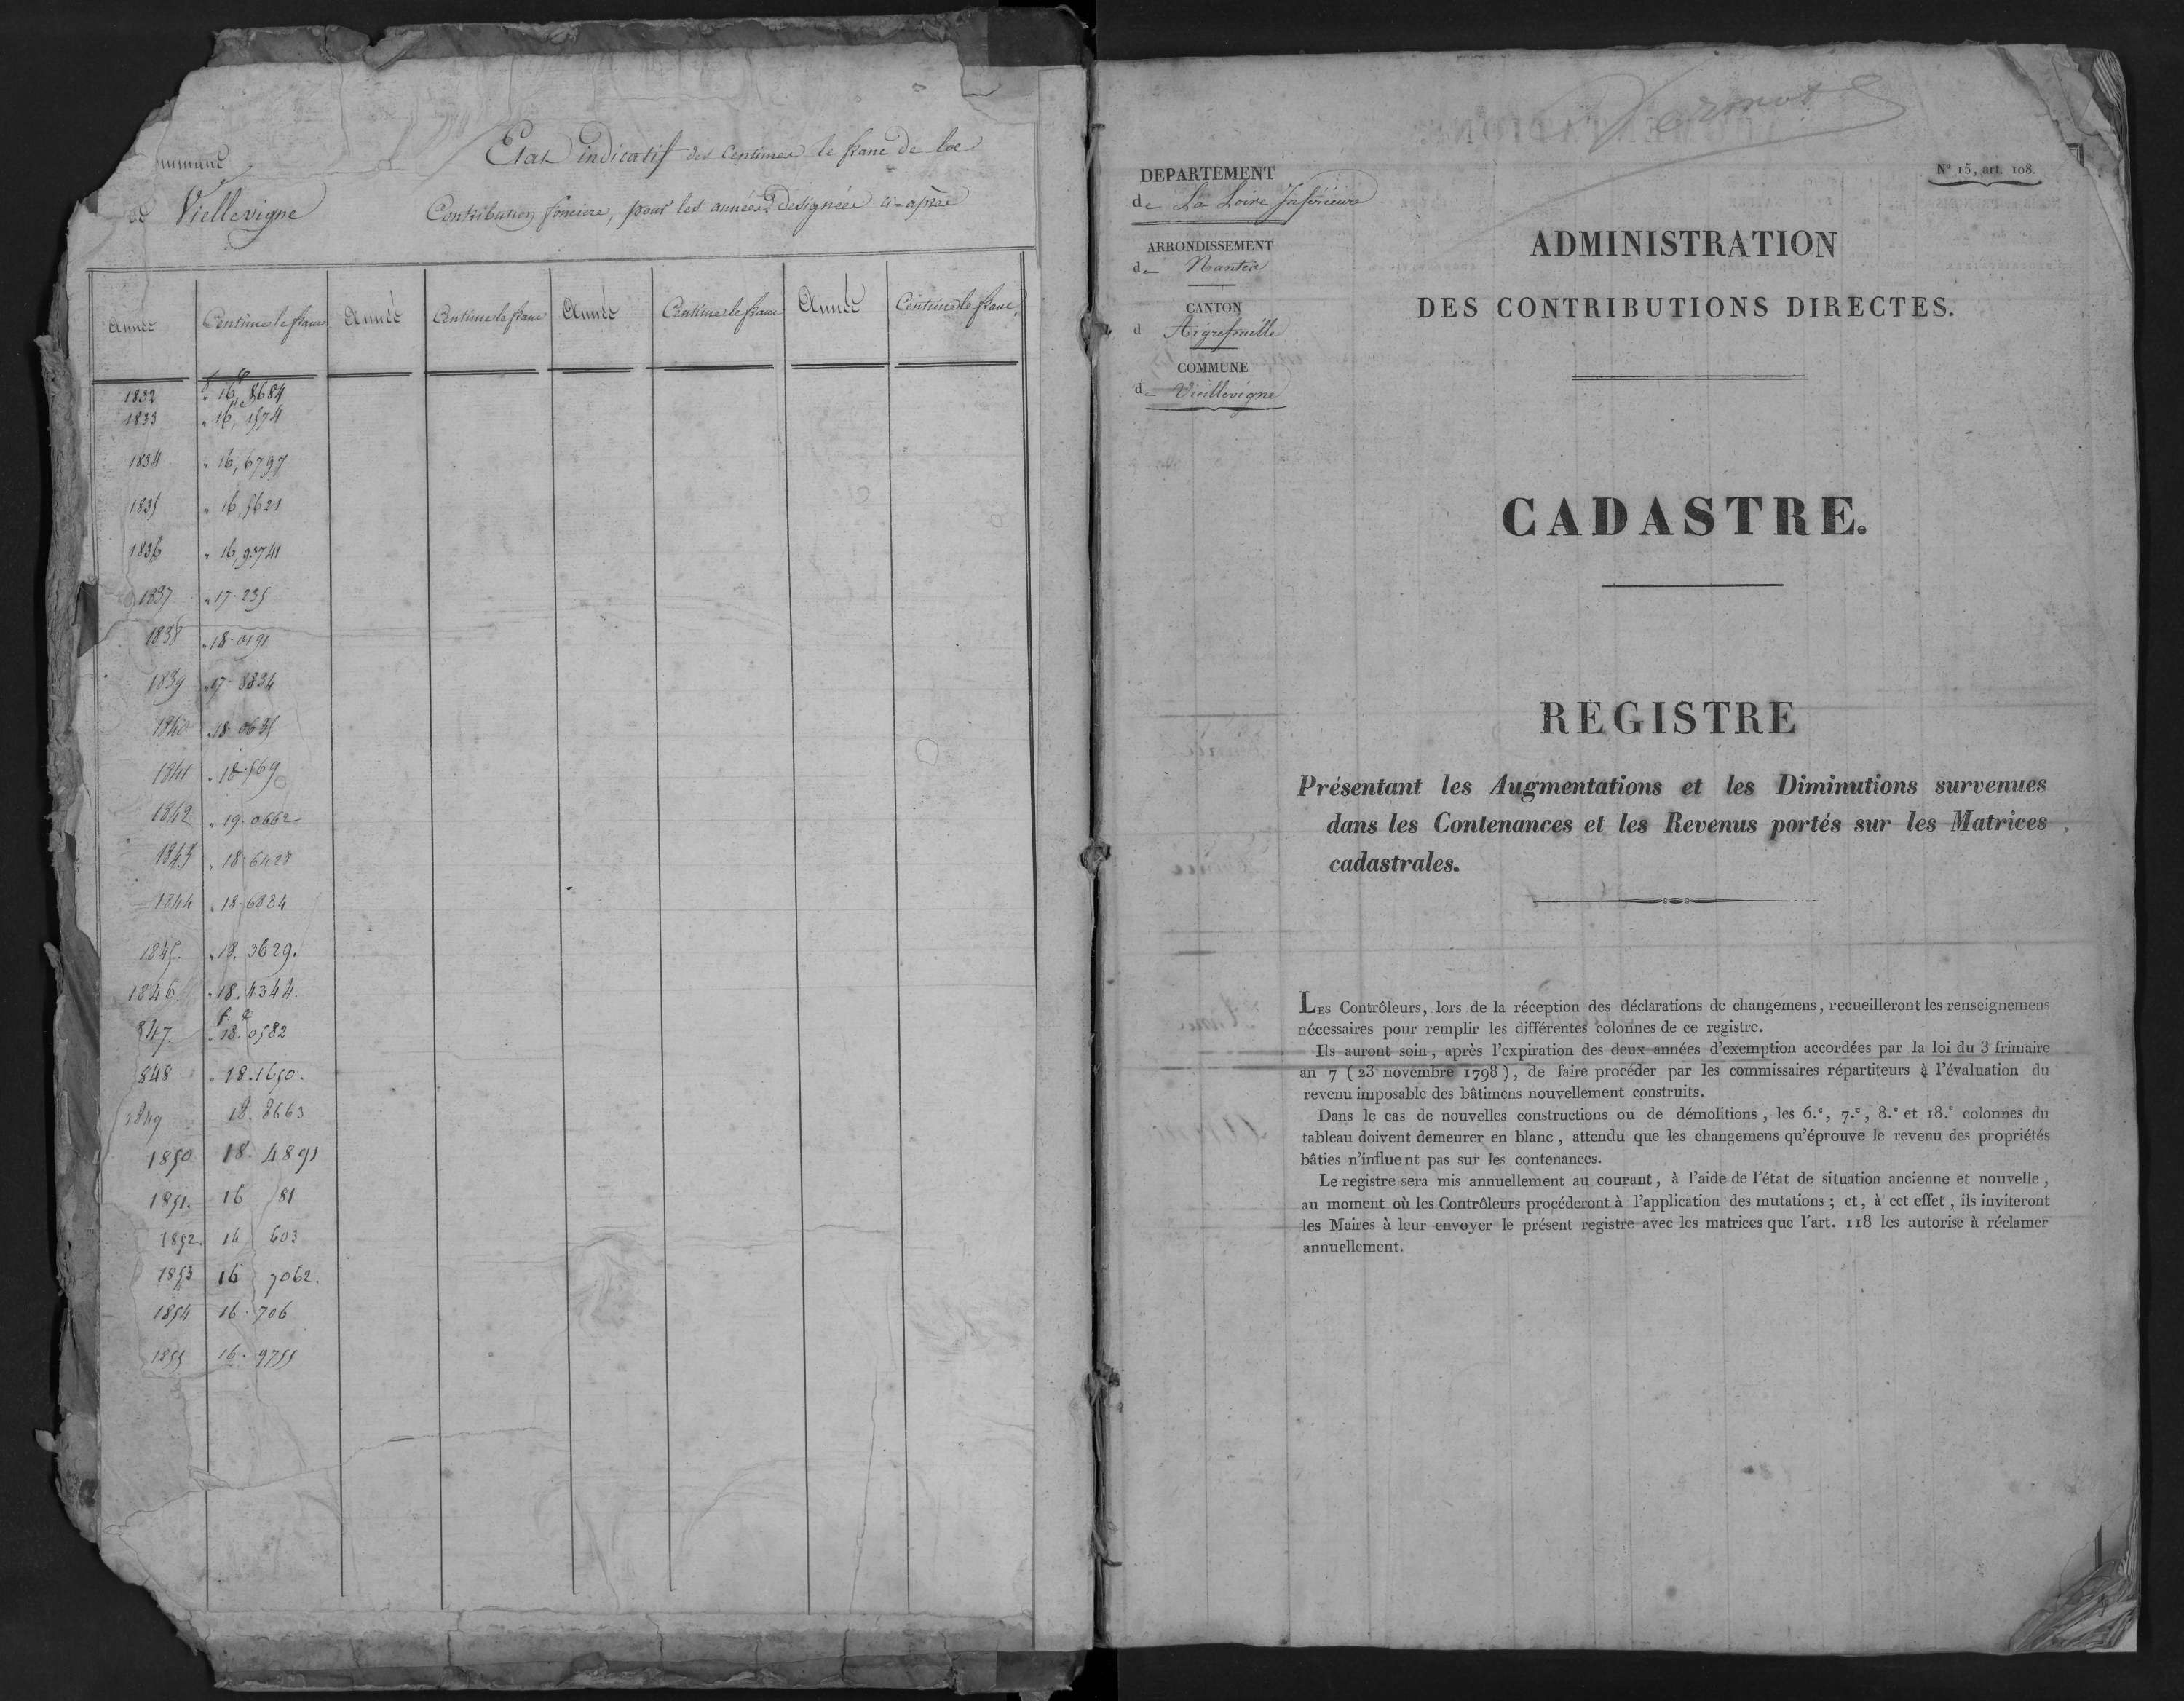 mmune
de Viellevigne
Etat indicatif des Centimes le franc de loc
Contribution fonciere, pour les années designées ci-après
Année Centime le franc Année Centime le franc Année Centime le franc Année Centime le franc
1832 " 16, 8684
1833 " 16, 1574
1834 " 16, 6797
1835 " 16, 5621
1836 " 16,93741
1837 " 17. 235
1838 " 18-0191
1839 " 17- 8834
1840 " 18-0635
1841 " 18.569
1842 " 19. 0662
1843 " 18-6428
1844 " 18-6834
1845. " 18. 3629.
1846 " 18. 4344.
847 " 18. 0582
848 " 18.1650.
1849 18. 2663
1850 18. 4891
1851. 16 81
1852. 16 603
1853 16 7062.
1854 16. 706
1855 16. 9755
Vermot
N° 15, art. 108.
DEPARTEMENT
de La Loire Inférieure
ARRONDISSEMENT
de Nantes
CANTON
d Aigrefeuille
COMMUNE
de Vieillevigne
ADMINISTRATION
DES CONTRIBUTIONS DIRECTES.
CADASTRE.
REGISTRE
Présentant les Augmentations et les Diminutions survenues
dans les Contenances et les Revenus portés sur les Matrices
cadastrales.
LES Contrôleurs, lors de la réception des déclarations de changemens, recueilleront les renseignemens
nécessaires pour remplir les différentes colonnes de ce registre.
Ils auront soin, après l'expiration des deux années d'exemption accordées par la loi du 3 frimaire
an 7 (23 novembre 1798), de faire procéder par les commissaires répartiteurs à l'évaluation du
revenu imposable des bâtimens nouvellement construits.
Dans le cas de nouvelles constructions ou de démolitions, les 6.e, 7.e, 8.e et 18.e colonnes du
tableau doivent demeurer en blanc, attendu que les changemens qu'éprouve le revenu des propriétés
bâties n'influent pas sur les contenances.
Le registre sera mis annuellement au courant, à l'aide de l'état de situation ancienne et nouvelle,
au moment où les Contrôleurs procéderont à l'application des mutations; et, à cet effet, ils inviteront
les Maires à leur envoyer le présent registre avec les matrices que l'art. 118 les autorise à réclamer
annuellement.